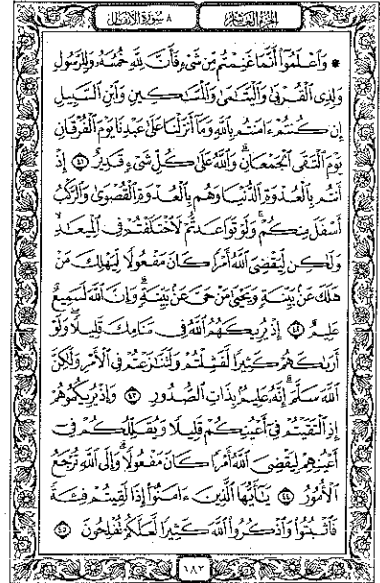 الجزء العاشر
٨ سورة الأنفال
۞ وَٱعْلَمُوٓا۟ أَنَّمَا غَنِمْتُم مِّن شَىْءٍ فَأَنَّ لِلَّهِ خُمُسَهُۥ وَلِلرَّسُولِ
وَلِذِى ٱلْقُرْبَىٰ وَٱلْيَتَـٰمَىٰ وَٱلْمَسَـٰكِينِ وَٱبْنِ ٱلسَّبِيلِ
إِن كُنتُمْ ءَامَنتُم بِٱللَّهِ وَمَآ أَنزَلْنَا عَلَىٰ عَبْدِنَا يَوْمَ ٱلْفُرْقَانِ
يَوْمَ ٱلْتَقَى ٱلْجَمْعَانِ ۗ وَٱللَّهُ عَلَىٰ كُلِّ شَىْءٍ قَدِيرٌ ٤١ إِذْ
أَنتُم بِٱلْعُدْوَةِ ٱلدُّنْيَا وَهُم بِٱلْعُدْوَةِ ٱلْقُصْوَىٰ وَٱلرَّكْبُ
أَسْفَلَ مِنكُمْ ۚ وَلَوْ تَوَاعَدتُّمْ لَٱخْتَلَفْتُمْ فِى ٱلْمِيعَـٰدِ ۙ
وَلَـٰكِن لِّيَقْضِىَ ٱللَّهُ أَمْرًا كَانَ مَفْعُولًا لِّيَهْلِكَ مَنْ
هَلَكَ عَنۢ بَيِّنَةٍ وَيَحْيَىٰ مَنْ حَىَّ عَنۢ بَيِّنَةٍ ۗ وَإِنَّ ٱللَّهَ لَسَمِيعٌ
عَلِيمٌ ٤٢ إِذْ يُرِيكَهُمُ ٱللَّهُ فِى مَنَامِكَ قَلِيلًا ۖ وَلَوْ
أَرَىٰكَهُمْ كَثِيرًا لَّفَشِلْتُمْ وَلَتَنَـٰزَعْتُمْ فِى ٱلْأَمْرِ وَلَـٰكِنَّ
ٱللَّهَ سَلَّمَ ۗ إِنَّهُۥ عَلِيمٌۢ بِذَاتِ ٱلصُّدُورِ ٤٣ وَإِذْ يُرِيكُمُوهُمْ
إِذِ ٱلْتَقَيْتُمْ فِىٓ أَعْيُنِكُمْ قَلِيلًا وَيُقَلِّلُكُمْ فِىٓ
أَعْيُنِهِمْ لِيَقْضِىَ ٱللَّهُ أَمْرًا كَانَ مَفْعُولًا ۗ وَإِلَى ٱللَّهِ تُرْجَعُ
ٱلْأُمُورُ ٤٤ يَـٰٓأَيُّهَا ٱلَّذِينَ ءَامَنُوٓا۟ إِذَا لَقِيتُمْ فِئَةً
فَٱثْبُتُوا۟ وَٱذْكُرُوا۟ ٱللَّهَ كَثِيرًا لَّعَلَّكُمْ تُفْلِحُونَ ٤٥
١٨٢